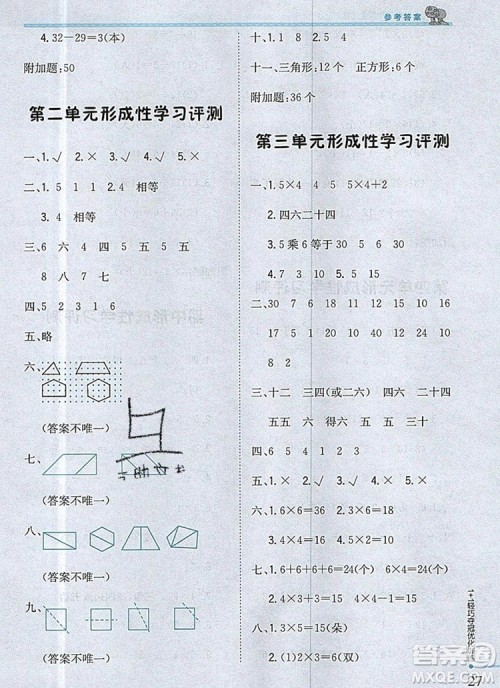 参考答案
4.32－29＝3(本)
附加题：50
第二单元形成性学习评测
一、1.√ 2.× 3.√ 4.√ 5.×
二、1.5 1 1 2.4 相等
3.4 相等
三、6 六 4 四 5 五 五
8 八 7 七
四、5 2 3 1 6
五、略
六、
(答案不唯一)
七、
(答案不唯一)
八、
(答案不唯一)
九、
十、1 8 2 5 4
十一、三角形：12个 正方形：6个
附加题：36个
第三单元形成性学习评测
一、1.5×4 4 5 5×4＋2
2.四六二十四
3.5 乘 6 等于 30 5 30
4.2 7 3 10 5 9 15
二、30 7 18 10 16 21 32
17 36 15 24 12 11 14
8 2
三、十二 三四(或二六) 二四 二二
五五 六 四 六 三十 五六
四、＜ ＞ ＝ ＜ ＝ ＞
五、1.× 2.× 3.√ 4.√
六、1.6×6＝36 2.4×6＝24
3.2×4＝8 4.5＋3＝8
七、1.6＋6＋6＋6＝24(个)
2.4×3＋1＝13(个)
八、1.3×5＝15(朵)
2.(1)2×3＝6(双)
1＋1轻巧夺冠优化
27
答案圈